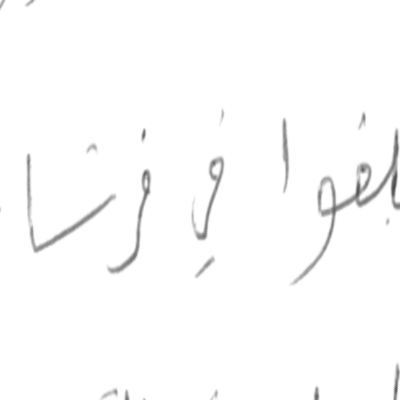 بلغوا في فرنسا